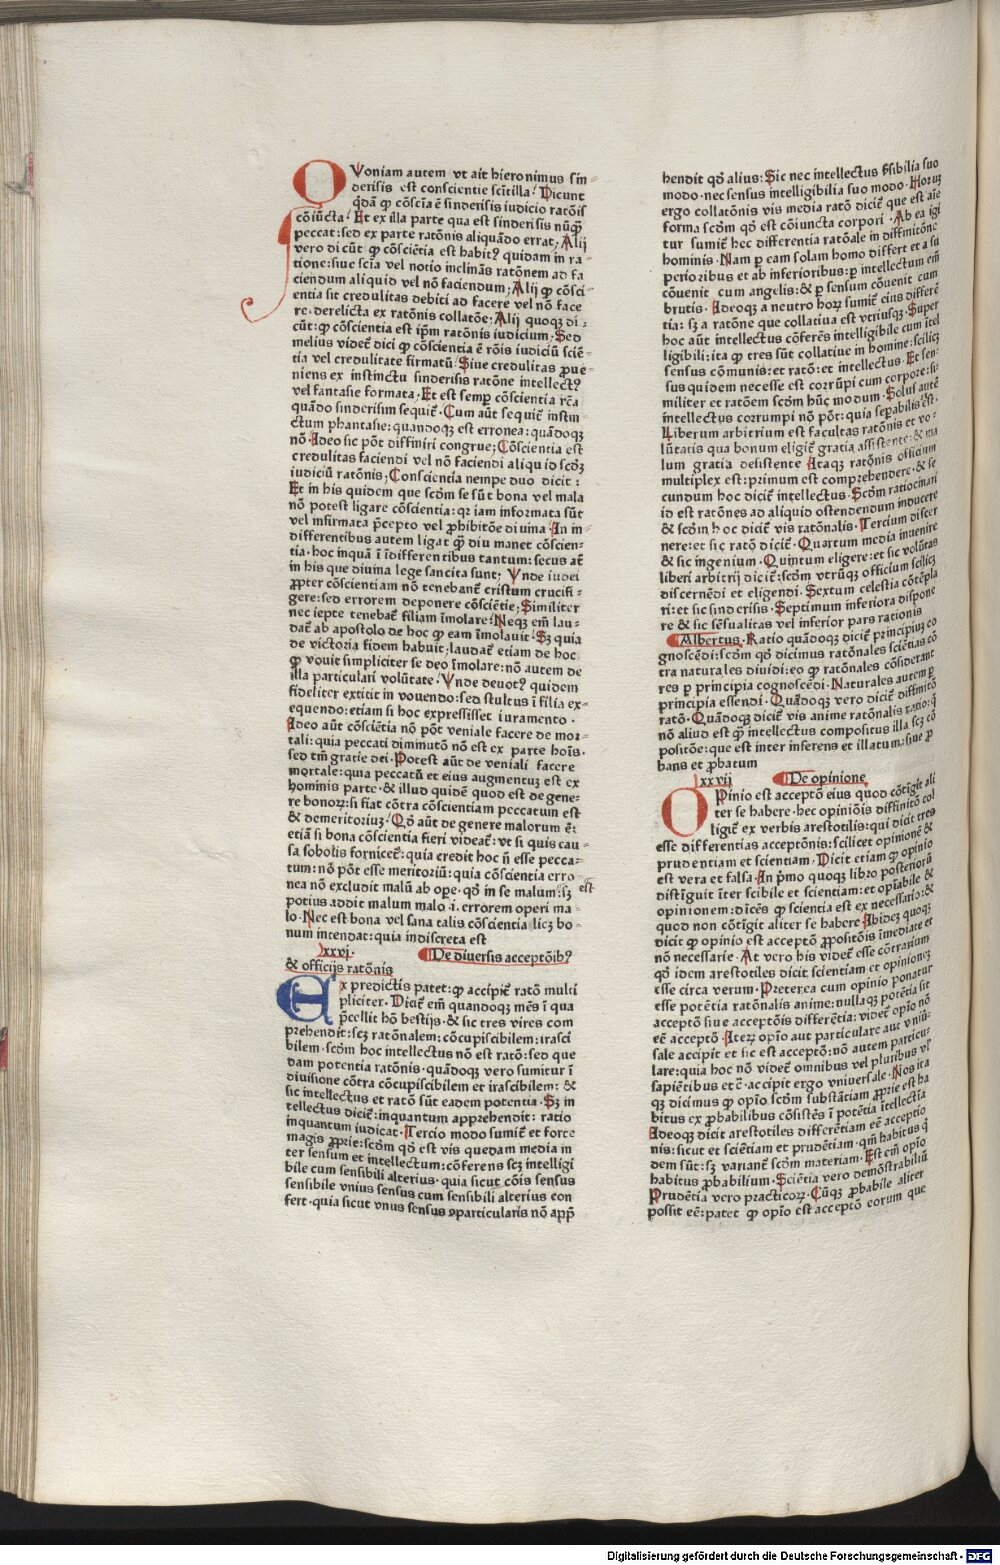 QVoniam autem vt ait hieronimus sin-
derisis est conscientie scītilla! Dicunt
q̄dā ꝙ cōscīa ē sinderisis iudicio ratōis
cōiūcta! Et ex illa parte qua est sinderisis nūq̄ꝫ
peccat: sed ex parte ratōnis aliquādo errat; Alij
vero dicūt ꝙ cōsciētia est habitꝰ quidam in ra-
tione: siue scīa vel notio inclināns ratōnem ad fa
ciendum aliquid vel nō faciendum; Alij ꝙ cōsci-
entia sit credulitas debiti ad facere vel nō face
re. derelicta ex ratōnis collatōe; Alij quoqꝫ di-
cūt: ꝙ cōscientia est ip̄m ratōnis iudicium; Sed
melius videt̄ dici ꝙ cōscientia ē rōis iudiciū sciē-
tia vel credulitate firmatū. Siue credulitas ꝓue-
niens ex instinctu sinderisis ratōne intellectꝰ
vel fantasie formata; Et est semꝑ cōscientia rc̄a
quādo sinderisim sequit̄. Cum aūt sequit̄ instin-
ctum phantasie: quandoqꝫ est erronea: quādoqꝫ
nō. Ideo sic pōt diffiniri congrue; Cōscientia est
credulitas faciendi vel nō faciendi aliquid scd̄ꝫ
iudiciū ratōnis; Conscientia nempe duo dicit:
Et in his quidem que scd̄m se sūt bona vel mala
nō potest ligare cōscientia: qꝛ iam informata sūt
vel infirmata p̄cepto vel ꝓhibitōe diuina. In in-
differentibus autem ligat ꝙ̄ diu manet cōscien-
tia. hoc inquā ī īdifferentibus tantum: secus at̄
in his que diuina lege sancita sunt; Vnde iudei
ꝓpter cōscientiam nō tenebant̄ cristum crucifi-
gere: sed errorem deponere cōsciētie; Similiter
nec iepte tenebat̄ filiam īmolare. Neqꝫ em̄ lau-
dat̄ ab apostolo de hoc ꝙ eam īmolauit. Sꝫ quia
de victoria fidem habuit; laudat̄ etiam de hoc
ꝙ vouit simpliciter se deo īmolare: nō autem de
illa particulari volūtate. Vnde deuotꝰ quidem
fideliter extitit in vouendo: sed stultus ī filia ex-
equendo: etiam si hoc expressisset iuramento.
Ideo aūt cōsciētia nō pōt veniale facere de mor-
tali: quia peccati diminutō nō est ex parte hoīs.
sed tm̄ gratie dei. Potest aūt de veniali facere
mortale: quia peccatū et eius augmentuꝫ est ex
hominis parte. & illud quidē quod est de gene-
re bonoꝝ: si fiat cōtra cōscientiam peccatum est
& demeritoriuꝫ. Qd̄ aūt de genere malorum ē:
etiā si bona cōscientia fieri videat̄: vt si quis cau-
sa sobolis fornicet̄: quia credit hoc n̄ esse pecca-
tum: nō pōt esse meritoriū: quia cōscientia erro-
nea nō excludit malū ab ope. qd̄ in se malum: sꝫ est
potius addit malum malo .i. errorem operi ma-
lo. Nec est bona vel sana talis cōscientia. licꝫ bo-
num intendat: quia indiscreta est
xxvi. De diuersis acceptōibꝰ
& officijs ratōnis
EX predictis patet: ꝙ accipit̄ ratō multi
pliciter. Dicit̄ em̄ quandoqꝫ mēs ī qua
p̄cellit hō bestijs. & sic tres vires com
prehendit: scꝫ ratōnalem: cōcupiscibilem: irasci
bilem. scd̄m hoc intellectus nō est ratō: sed que
dam potentia ratōnis. quādoqꝫ vero sumitur ī
diuisione cōtra cōcupiscibilem et irascibilem: &
sic intellectus et ratō sūt eadem potentia. Sꝫ in
tellectus dicit̄: inquantum apprehendit: ratio
inquantum iudicat. Tercio modo sumit̄ et forte
magis ꝓprie: scd̄m qd̄ est vis quedam media in
ter sensum et intellectum: cōferens scꝫ intelligi
bile cum sensibili alterius. quia sicut cōis sensus
sensibile vnius sensus cum sensibili alterius con
fert. quia sicut vnus sensus particularis nō app̄
hendit qd̄ alius: Sic nec intellectus sēsibilia suo
modo. nec sensus intelligibilia suo modo. Horuꝫ
ergo collatōnis vis media ratō dicit̄ que est aīe
forma scd̄m qd̄ est cōiuncta corpori. Ab ea igi
tur sumit̄ hec differentia ratōnale in diffinitōne
hominis. Nam ꝑ eam solam homo differt et a su
perioribus et ab inferioribus: ꝑ intellectum em̄
cōuenit cum angelis: & ꝑ sensum cōuenit cum
brutis. Ideoqꝫ a neutro horꝫ sumit̄ eius differē
tia: sꝫ a ratōne que collatiua est vtriusqꝫ. Super
hoc aūt intellectus cōferēs intelligibile cum ītel
ligibili: ita ꝙ tres sūt collatiue in homine: scilicꝫ
sensus cōmunis: et ratō: et intellectus. Et sen-
sus quidem necesse est corrūpi cum corpore: si-
militer et ratōem scd̄m hūc modum. Solus autē
intellectus corrumpi nō pōt: quia sepabilis est.
Liberum arbitrium est facultas ratōnis et vo-
lūtatis qua bonum eligit̄ gratia assistente: & ma
lum gratia desistente. Itaqꝫ ratōnis officium
multiplex est: primum est comprehendere. & se
cundum hoc dicit̄ intellectus. Scd̄m ratiocinari
id est ratōnes ad aliquid ostendendum inducere
& scd̄m hoc dicit̄ vis ratōnalis. Tercium discer
nere: et sic ratō dicit̄. Quartum media inuenire
& sic ingenium. Quintum eligere: et sic volūtas
liberi arbitrij dicit̄: scd̄m vtrūqꝫ officium scilicꝫ
discernēdi et eligendi. Sextum celestia cōtēpla
ri: et sic sinderisis. Septimum inferiora dispone
re & sic sēsualitas vel inferior pars rationis
Albertus. Ratio quādoqꝫ dicit̄ principiuꝫ co
gnoscēdi: scd̄m qd̄ dicimus ratōnales sciētias cō
tra naturales diuidi: eo ꝙ ratōnales cōsiderant
res ꝑ principia cognoscēdi. Naturales autem ꝑ
principia essendi. Quādoqꝫ vero dicit̄ diffinitō
ratō. Quādoqꝫ dicit̄ vis anime ratōnalis ratio: q̄
nō aliud est ꝙ̄ intellectus compositus illa scꝫ cō
positōe: que est inter inferens et illatum: siue ꝓ
bans et ꝓbatum
xxvij De opinione
OPinio est acceptō eius quod cōtīgit ali
ter se habere. hec opiniōis diffinitō col
ligit̄ ex verbis arestotilis: qui dicit tres
esse differentias acceptōnis: scilicet opinionē &
prudentiam et scientiam. Dicit etiam ꝙ opinio
est vera et falsa. In p̄mo quoqꝫ libro posteriorū
distīguit īter scibile et scientiam: et opīabile &
opinionem: dīcēs ꝙ scientia est ex necessario: &
quod non cōtīgit aliter se habere. Ibideꝫ quoqꝫ
dicit ꝙ opinio est acceptō ꝓpositōis īmediate et
nō necessarie. At vero his videt̄ esse cōtrarium
qd̄ idem arestotiles dicit scientiam et opinionem
esse circa verum. Preterea cum opinio ponatur
esse potētia ratōnalis anime: nullaqꝫ potētia sit
acceptō siue acceptōis differētia: videt̄ opīo nō
eē acceptō. Iteꝫ opīo aut particulare aut vniū-
sale accipit et sic est acceptō: nō autem particu-
lare: quia hoc nō videt̄ omnibus vel pluribus vl̄
sapiētibus etc̄. accipit ergo vniuersale. Nos ita
qꝫ dicimus ꝙ opīo. scd̄m substātiam ꝓprie est ha
bitus ex ꝓbabilibus cōsistēs ī potētia ītellectīa
Ideoqꝫ dicit arestotiles differētiam eē acceptio
nis: sicut et sciētiam et prudētiam. qm̄ habitus q̄
dem sūt: sꝫ variant̄ scd̄m materiam. Est em̄ opīo
habitus ꝓbabilium. Sciētia vero demōstrabiliū
Prudētia vero practicoꝝ. Cūqꝫ ꝓbabile aliter
possit eē: patet ꝙ opīo est acceptō eorum que
Digitalisierung gefördert durch die Deutsche Forschungsgemeinschaft - DFG